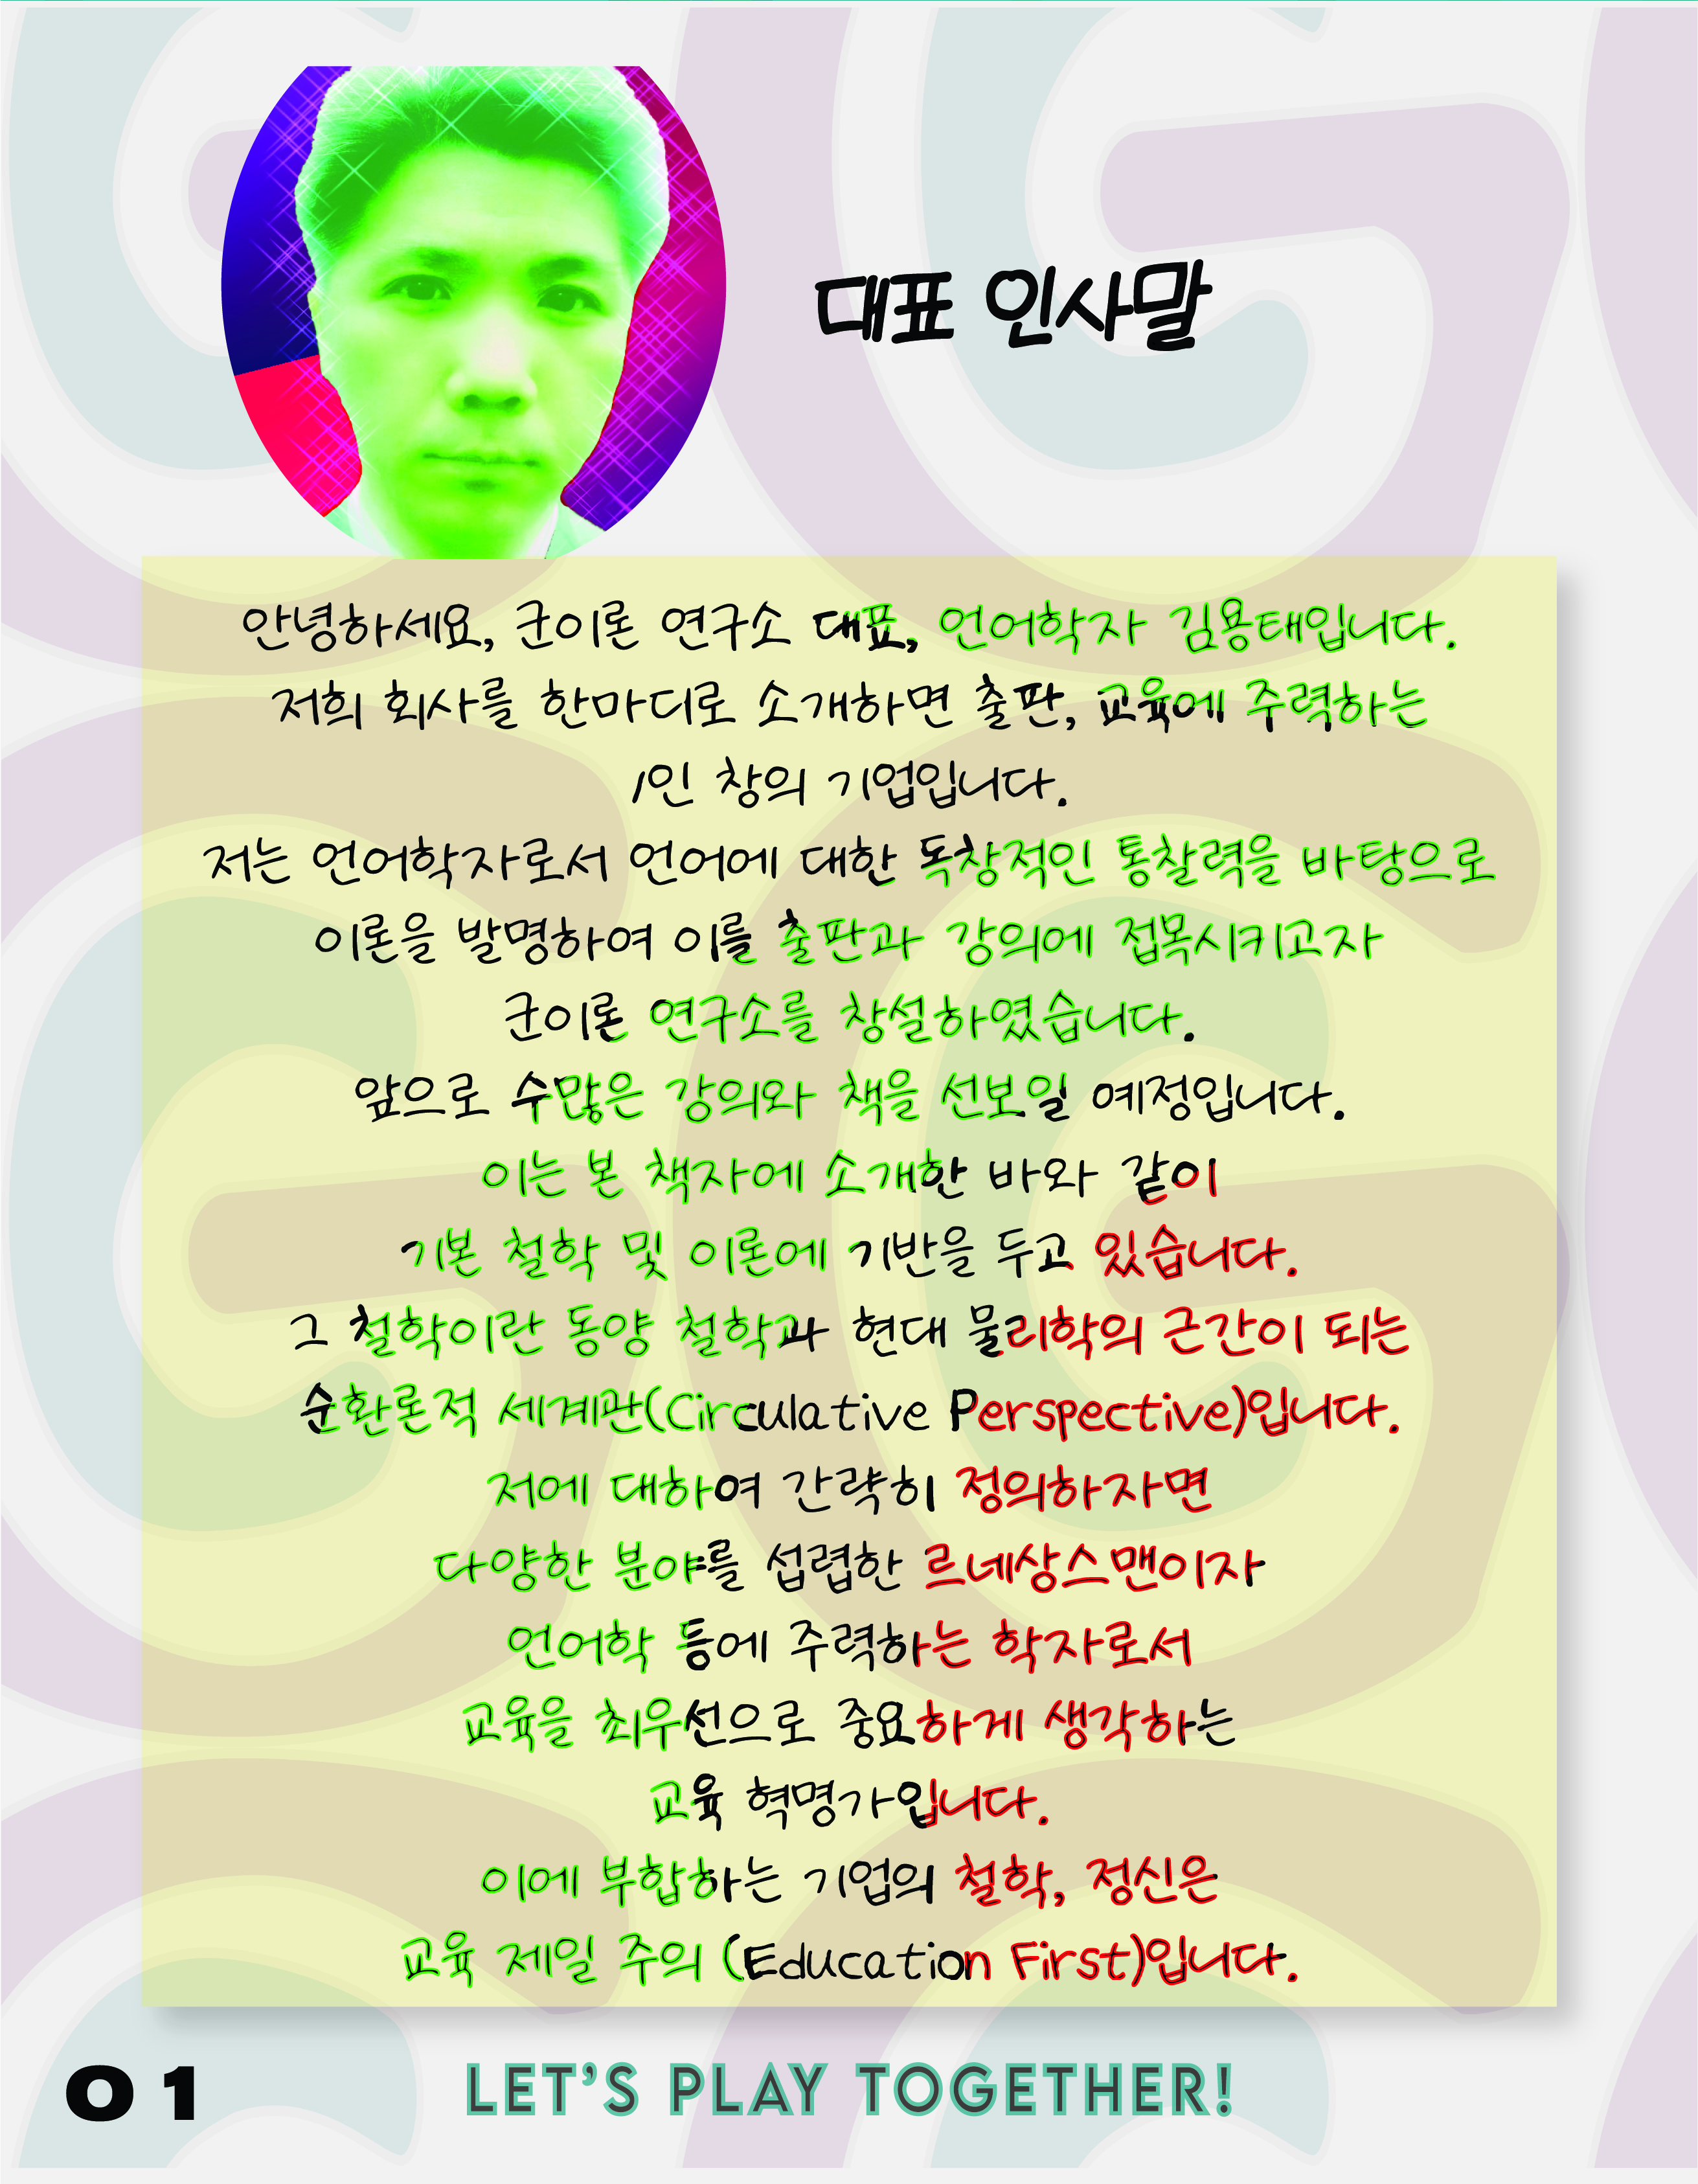 대표 인사말
안녕하세요, 군이론 연구소 대표, 언어학자 김용태입니다.
저희 회사를 한마디로 소개하면 출판, 교육에 주력하는
1인 창의 기업입니다.
저는 언어학자로서 언어에 대한 독창적인 통찰력을 바탕으로
이론을 발명하여 이를 출판과 강의에 접목시키고자
군이론 연구소를 창설하였습니다.
앞으로 수많은 강의와 책을 선보일 예정입니다.
이는 본 책자에 소개한 바와 같이
기본 철학 및 이론에 기반을 두고 있습니다.
그 철학이란 동양 철학과 현대 물리학의 근간이 되는
순환론적 세계관(Circulative Perspective)입니다.
저에 대하여 간략히 정의하자면
다양한 분야를 섭렵한 르네상스맨이자
언어학 등에 주력하는 학자로서
교육을 최우선으로 중요하게 생각하는
교육 혁명가입니다.
이에 부합하는 기업의 철학, 정신은
교육 제일 주의 (Education First)입니다.
01 LET'S PLAY TOGETHER!